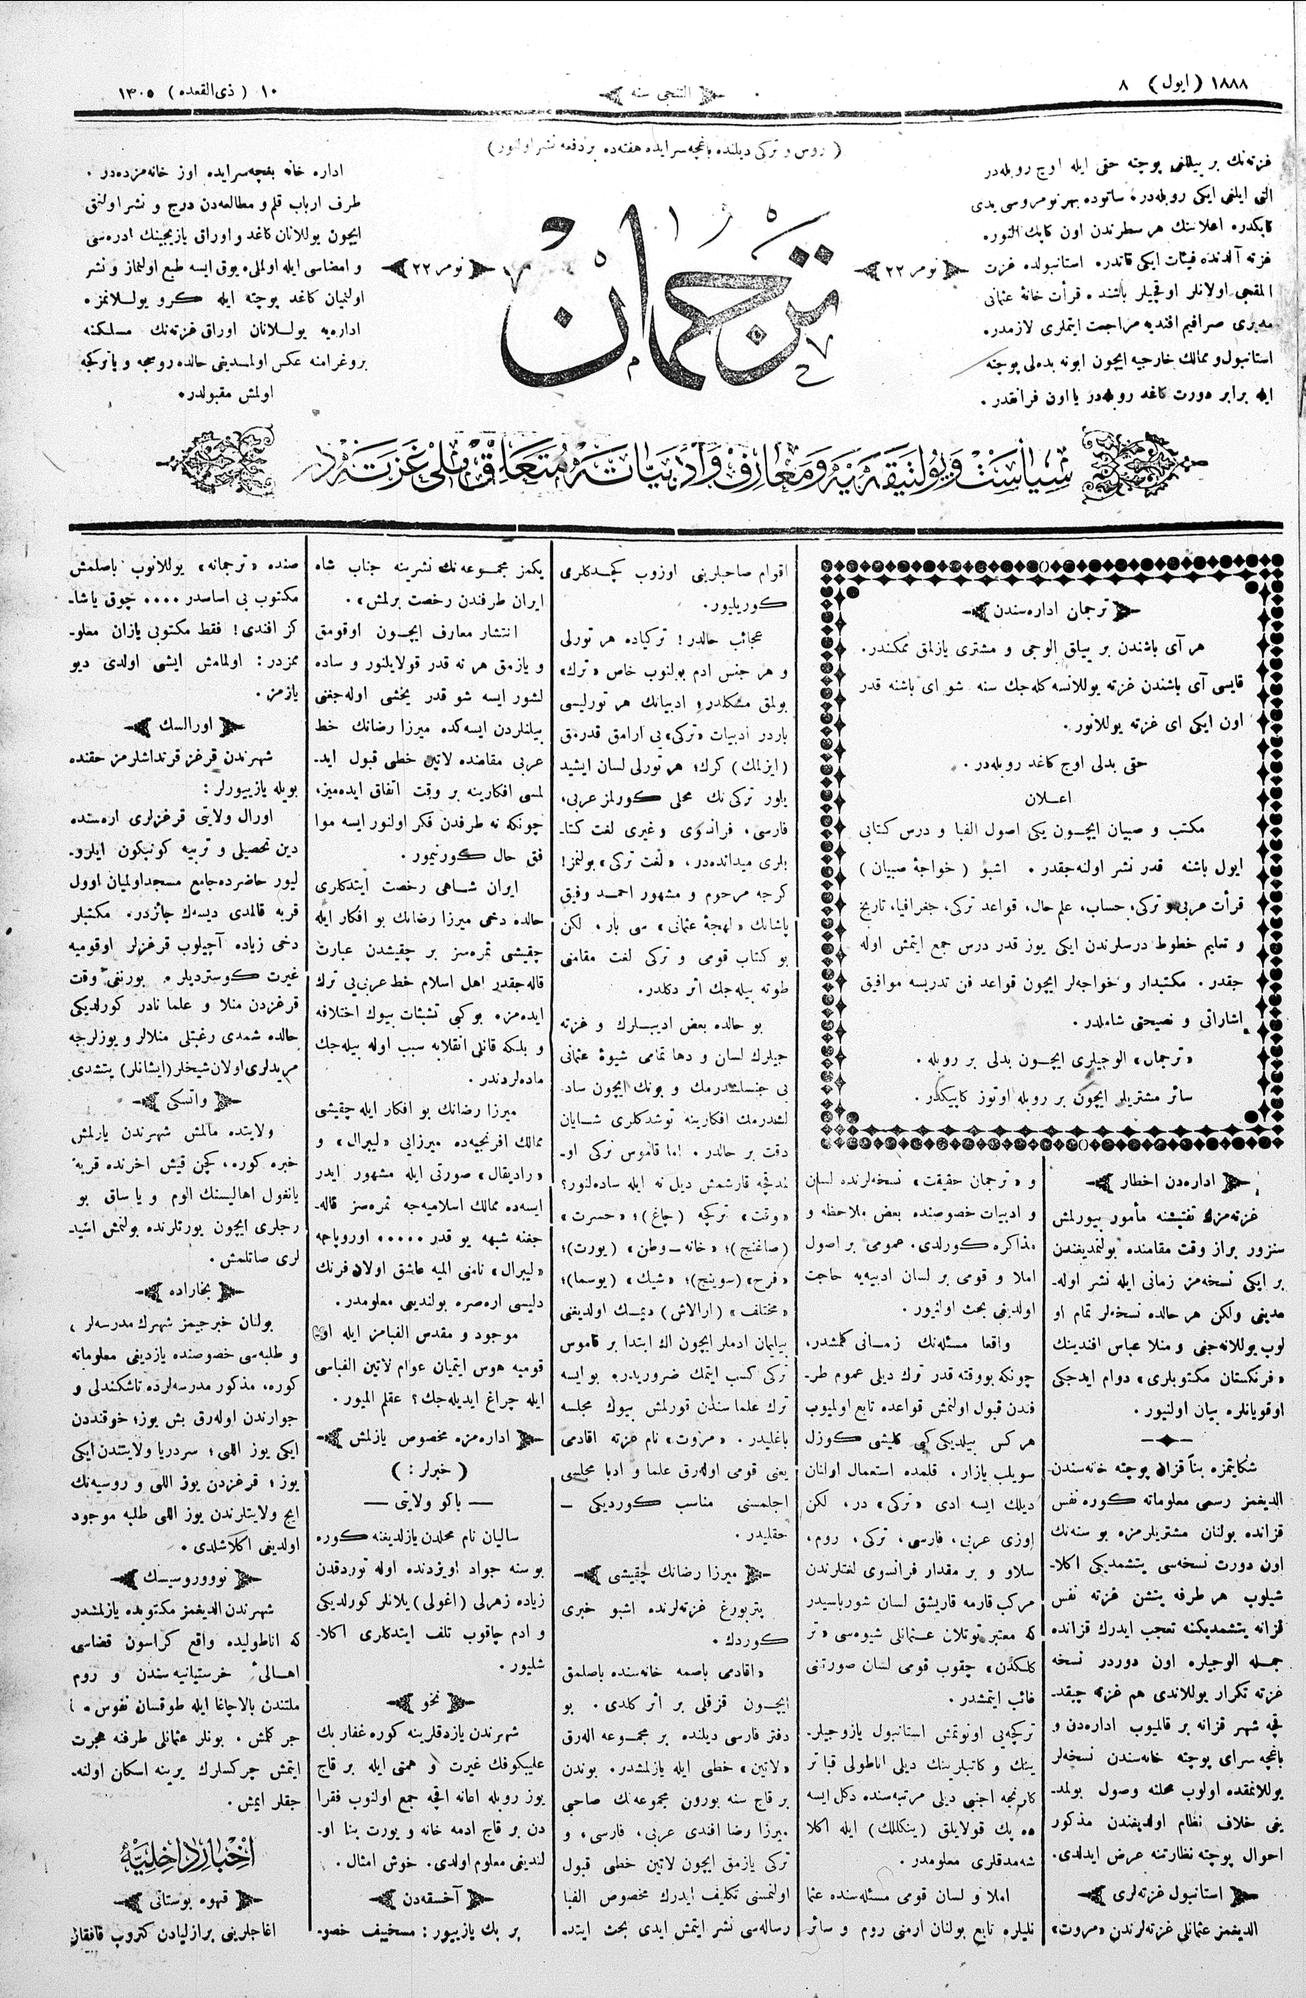 ١٨٨٨ (ايول) ٨
التنجى سنه
١٠ (ذى القعده) ١٣٠٥
(روس و تركى ديلنده باغچه سرايده هفته ده بر دفعه نشر اولنور)
غزته نك بر ييللغى پوچته حقى ايله اوچ روبله در
التى ايلغى ايكى روبله در. ساتوده بهر نومروسى يدى
كاپكدر. اعلاننك هر سطرندن اون كاپك النور.
غزته آلدنده فيئات ايكى قاتدره. استانبولده غزت
المقجى اولانلر اوقجيلر باشنده قرأت خانۀ عثمانى
مديرى صرافيم افنديه مراجعت ايتملرى لازمدر.
استانبول و ممالك خارجيه ايچون ابونه بدلى پوچته
ايله برابر دورت كاغد روبله در يا اون فرانقدر.
نومر ٢٢
ترجمان
١٣٠٥
نومر ٢٢
اداره خانه بغچه سرايده اوز خانه مزده در.
طرف ارباب قلم و مطالعه دن درج و نشر اولنمق
ايچون يوللانان كاغد و اوراق يازيجينك ادره سى
و امضاسى ايله اولملى. يوق ايسه طبع اولنماز و نشر
اولنميان كاغد پوچته ايله كرو يوللانمز.
اداره يه يوللانان اوراق غزته نك مسلكنه
پروغرامنه عكس اولمسديغى حالده روسچه و يا تركچه
اولمش مقبولدر.
سياست و پولتيقه يه و معارف و ادبياته متعلق ملى غزته در
ترجمان اداره سندن
هر آى باشندن بر ييلق الوجى و مشترى يازلمق ممكندر.
قايسى آى باشندن غزته يوللانسه كله جك سنه شو اى باشنه قدر
اون ايكى اى غزته يوللانور.
حقى بدلى اوچ كاغد روبله در.
اعلان
مكتب و صبيان ايچون يكى اصول الفبا و درس كتابى
ايول باشنه قدر نشر اولنه جقدر. اشبو (خواجۀ صبيان)
قرأت عربى و تركى، حساب، علم حال، قواعد تركى، جغرافيا، تاريخ
و تعليم خطوط درسلرندن ايكى يوز قدر درس جمع ايتمش اوله
جقدر. مكتبدار و خواجه لر ايچون قواعد فن تدريسه موافق
اشاراتى و نصيحتى شاملدر.
«ترجمان» الوجيلرى ايچون بدلى بر روبله.
سائر مشتريلر ايچون بر روبله اوتوز كاپيكدر.
اداره دن اخطار
غزته مزك تفتيشنه مأمور بيورلمش
سنزور براز وقت مقامنده بولنمديغندن
بر ايكى نسخه مز زمانى ايله نشر اوله
مديى ولكن هر حالده نسخه لر تمام او
لوب يوللانه جغى و منلا عباس افندينك
«فرنكستان مكتوبلرى» دوام ايده جكى
اوقويانلره بيان اولنيور.
شكايتمزه بناً قزان پوچته خانه سندن
الديغمز رسمى معلوماته كوره نفس
قزانده بولنان مشتريلرمزه بو سنه نك
اون دورت نسخه سى يتشمديكى اكلا
شيلوب هر طرفه يتشن غزته نفس
قزانه يتشمديكنه تعجب ايدرك قزانده
جمله الوجيلره اون دوردر نسخه
غزته تكرار يوللاندى هم غزته چيقد
قچه شهر قزانه بر قالميوب اداره دن و
باغچه سراى پوچته خانه سندن نسخه لر
يوللانمقده اولوب محلنه وصول بولمد
يغى خلاف نظام اولديغندن مذكور
احوال پوچته نظارتنه عرض ايدلدى.
استانبول غزته لرى
الديغمز عثمانلى غزته لرندن «مروت»
و «ترجمان حقيقت» نسخه لرنده لسان
و ادبيات خصوصنده بعض ملاحظه و
مذاكره كورلدى. عمومى بر اصول
املا و قومى بر لسان ادبيه يه حاجت
اولديغى بحث اولنيور.
واقعا مسئله نك زمانى كلمشدر،
چونكه بو وقته قدر ترك ديلى عموم طر
فندن قبول اولنمش قواعده تابع اولميوب
هر كس بيلديكى كبى كليشى كوزل
سويلب يازار. قلمده استعمال اولنان
ديلك ايسه ادى «تركى» در، لكن
اوزى عربى، فارسى، تركى، روم،
سلاو و بر مقدار فرانسوى لغتلرندن
مركب قارمه قاريشق لسان شورباسيدر
كه معتبر توتلان عثمانلى شيوه سى «تر
كلكدن» چقوب قومى لسان صورتنى
غائب ايتمشدر.
تركچه يى اونوتمش استانبول يازوجيلر
ينك و كاتبلرينك ديلى اناطولى قبا تر
كارنجه اجنبى ديلى مرتبه سنده دكل ايسه
ده پك قولايلق (ينكللك) ايله اكلا
شه مدقلرى معلومدر.
املا و لسان قومى مسئله سنده عثما
نليلره تابع بولنان ارمنى روم و سائر
اقوام صاحبلرينى اوزوب كچدكلرى
كوريليور.
عجائب حالدر! تركياده هر تورلى
و هر جنس ادم بولنوب خاص «ترك»
بولمق مشكلدر؛ ادبياتك هر تورليسى
باردر ادبيات «تركى» يى ارامق قدرتق
(ايزلمك) كرك؛ هر تورلى لسان ايشيد
يلور تركى نك محلى كورلمز عربى،
فارسى، فرانسوى وغيرى لغت كتا
بلرى ميدانده در، «لغت تركى» بولنمز!
كرچه مرحوم و مشهور احمد وفيق
پاشانك «لهجۀ عثمانى» سى بار. لكن
بو كتاب قومى و تركى لغت مقامنى
طوته بيله جك اثر دكلدر.
بو حالده بعض اديبلرك و غزته
جيلرك لسان و دها تمامى شيوۀ عثمانى
يى جنسلشدرمك و بونك ايچون ساد
لشدرمك افكارينه توشدكلرى شايان
دقت بر حالدر. اما قاموس تركى او
لمدقچه قارشمش ديل نه ايله ساده لنور؟
«وقت» تركچه (چاغ)؛ «حسرت»
(صاغنچ)؛ «خانه - وطن» (يورت)؛
«فرح» (سوينچ)؛ «شيك» (يوسما)؛
«مختلف» (ارالاش) ديمك اولديغنى
بيلمان ادملر ايچون اك ابتدا بر قاموس
تركى كسب ايتمك ضروريدر. بو ايسه
ترك علماسندن قورلمش بيوك مجلسه
باغليدر. «مروت» نام غزته اقادمى
يعنى قومى اوله رق علما و ادبا مجلسى
اچلمسنى مناسب كورديكى -
حقليدر.
ميرزا رضانك چقيشى
پتربورغ غزته لرنده اشبو خبرى
كوردك.
«اقادمى باصمه خانه سنده باصلمق
ايچون قزقلى بر اثر كلدى. بو
دفتر فارسى ديلنده بر مجموعه اله رق
«لاتين» خطى ايله يازلمشدر. بوندن
بر قاچ سنه بورون مجموعه نك صاحبى
ميرزا رضا افندى عربى، فارسى، و
تركى يازمق ايچون لاتين خطى قبول
اولنمسنى تكليف ايدرك مخصوص الفبا
رساله سى نشر ايتمش ايدى بحث ايتد
يكمز مجموعه نك نشرينه جناب شاه
ايران طرفندن رخصت برلمش».
انتشار معارف ايچون اوقومق
و يازمق هر نه قدر قولايلنور و ساده
لشور ايسه شو قدر يخشى اوله جغى
بيلنلردن ايسه كده ميرزا رضانك خط
عربى مقامنده لاتين خطى قبول ايد
لمسى افكارينه بر وقت اتفاق ايده ميز،
چونكه نه طرفدن فكر اولنور ايسه موا
فق حال كورنيور.
ايران شاهى رخصت ايتدكلرى
حالده دخى ميرزا رضانك بو افكار ايله
چقيشى ثمره سز بر چقيشدن عبارت
قاله جقدر اهل اسلام خط عربى يى ترك
ايده مز. بو كبى تشبثات بيوك اختلافه
و بلكه قانلى انقلابه سبب اوله بيله جك
ماده لردندر.
ميرزا رضانك بو افكار ايله چقيشى
ممالك افرنجيه ده ميرزايى «ليبرال» و
«راديقال» صورتى ايله مشهور ايدر
ايسه ده ممالك اسلاميه جه ثمره سز قاله
جغنه شبهه يوقدر..... اوروپاچه
«ليبرال» نامنى المه عاشق اولان فرنك
دليسى اره صره بولنديغى معلومدر.
موجود و مقدس الفبامز ايله او
قوميه هوس ايتميان عوام لاتين الفباسى
ايله چراغ ايديله جك؟ عقلم الميور.
اداره مزه مخصوص يازلمش
(خبرلر:)
— باكو ولايتى —
ساليان نام محلدن يازلديغنه كوره
بو سنه جواد اويزدنده اوله تورد قدن
زياده زهرلى (اغولى) يلانلر كورلديكى
و ادم چاقوب تلف ايتدكلرى اكلا
شليور.
نخو
شهرندن يازدقلرينه كوره غفار بك
عليكوفك غيرت و همتى ايله بر قاچ
يوز روبله اعانه اقچه جمع اولنوب فقرا
دن بر قاچ ادمه خانه و يورت بنا او
لنديغى معلوم اولدى. خوش امثال.
آخسقه دن
بر بك يازييور: مسخيف خصو
صنده «ترجمانه» يوللانوب باصلمش
مكتوب بى اساسدر.... چوق ياشا
كز افندى! فقط مكتوبى يازان معلو
ممزدر: اولمامش ايشى اولدى ديو
يازمز.
اورالسك
شهرندن قرغز قرنداشلرمز حقنده
بويله يازييورلر:
اورال ولايتى قرغزلرى اره سنده
دين تحصيلى و تربيه كونيكون ايلرو
ليور حاضرده جامع مسجد اولميان اوول
قريه قالمدى ديسه ك جائزدر. مكتبلر
دخى زياده آچيلوب قرغزلر اوقوميه
غيرت كوسترديلر. بورنغى وقت
قرغزدن منلا و علما نادر كورلديكى
حالده شمدى رغبتلى منلالر و يوزلرجه
مريدلرى اولان شيخلر (ايشانلر) يتشدى
واتسكى
ولايتده مالمش شهرندن يازلمش
خبره كوره، كچن قيش اخرنده قريه
يانغول اهاليسنك الوم و ياساق بو
رجلرى ايچون يورتلرنده بولنمش اشيا
لرى صاتلمش.
بخاراده
بولنان خبرجيمز شهرك مدرسه لر
و طلبه سى خصوصنده يازديغى معلوماته
كوره، مذكور مدرسه لرده تاشكندلى و
جوارندن اوله رق بش يوز؛ خوقنددن
ايكى يوز اللى؛ سردريا ولايتندن ايكى
يوز؛ قرغزدن يوز اللى و روسيه نك
ايچ ولايتلرندن يوز اللى طلبه موجود
اولديغى اكلاشلدى.
نووروسيسك
شهرندن الديغمز مكتوبده يازلمشدر
كه اناطوليده واقع كراسون قضاسى
اهالئ خرستيانيه سندن و روم
ملتندن بالاچاغا ايله طوقسان نفوس
جر كلمش. بونلر عثمانلى طرفنه هجرت
ايتمش چركسلرك يرينه اسكان اولنه
جقلر ايمش.
اخبار داخليه
قهوه بوستانى
اغاجلرينى برازليادن كتروب قافقاز